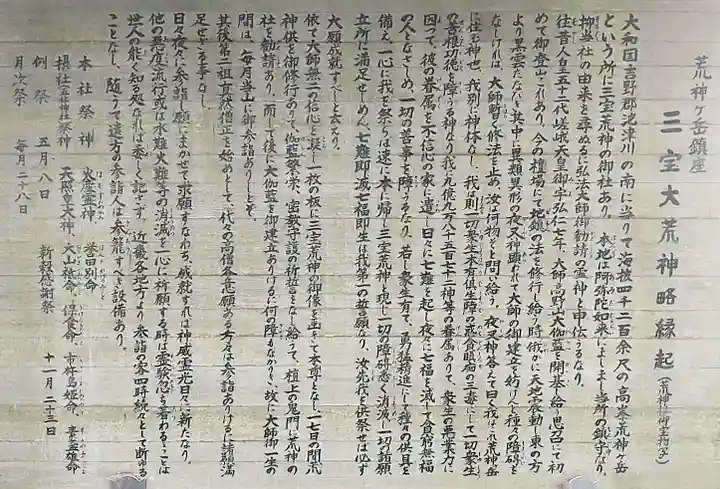 荒神ヶ岳鎮座
三宝大荒神略縁起(荒神社御宝物写)
大和国吉野郡池津川の南に当りて海抜四千二百余尺の高峯荒神ヶ岳
という所に三宝荒神の御社あり、本地は阿弥陀如来にましまし当所の鎮守なり、
抑当社の由来を尋ぬるに弘法大師御勧請の霊神と申伝うるなり、
往昔人皇五十二代嵯峨天皇御宇弘仁七年、大師高野山大伽藍を開基し給う思召にて初
めて御登山これあり、今の檀場にて地鎮の法を修行し給う時俄かに天地震動し東の方
より黒雲たなびき其中に異類異形の夜叉神顕われて大師の御建立を妨げんと種々の障碍を
なしければ、大師暫く修法を止め、汝は何物ぞと問い給う、夜叉神答えて曰く我はこれ荒神岳
に住む神也、我別に神体なし、我は則一切衆生本有倶生障の貪瞋痴の三毒にして一切衆生
の善根功徳を障うる神なり我に九億九万八千五百七十二神等の眷属ありて、衆生の悪業力に
因って、彼の眷属を不信心の家に遣し日々に七難を起し夜々に七福を滅して貧窮無福
の人となさしめ、一切の善事を障うるなり、若し衆生有て、勇猛精進にして種々の供具を
備え、一心に我を祭らば速に本に帰り三宝荒神と現し一切の障碍悉く消滅し一切の諸願
立所に満足せしめん、七難即滅七福即生は我第一の誓願なり、汝先我を供祭せば必ず
大願成就すべしと云えり、
依て大師無二の信心を凝し一枚の板に三宝荒神の御像を画きて本尊となし一七日の間荒
神供を御修行ありて、伽藍繁栄、密教守護の祈誓をなし給うて、壇上の鬼門に荒神の
社を勧請あり、而して後に大伽藍を御建立ありけるに何の障もなかりき、故に大師御一生の
間は、毎月当山に御参詣ありしとぞ、
其後第二祖真然僧正を始めとして、代々の高僧各意願ある者々は参詣ありけるに諸願満
足せざる事なし、
日々夜々に参詣し願にまかせて求願すなわち、成就すれば神威霊光日々に新たなり、
他の悪疫流行或は水難火難等の消滅を一心に祈願する時は霊験忽ち著わるることは
世人の能く知る処なれば委しく記さず、近畿各地方より参詣の家四時続々として断ゆる
ことなし、随って遠方の参詣人は参籠すべき設備あり、
本社祭神 火産霊神、誉田別命
摂社 祭神 天照皇大神、大山祗命、保食命、市杵島姫命、素盞雄命
例祭 五月八日 新穀感謝祭 十一月二十三日
月次祭 毎月二十八日